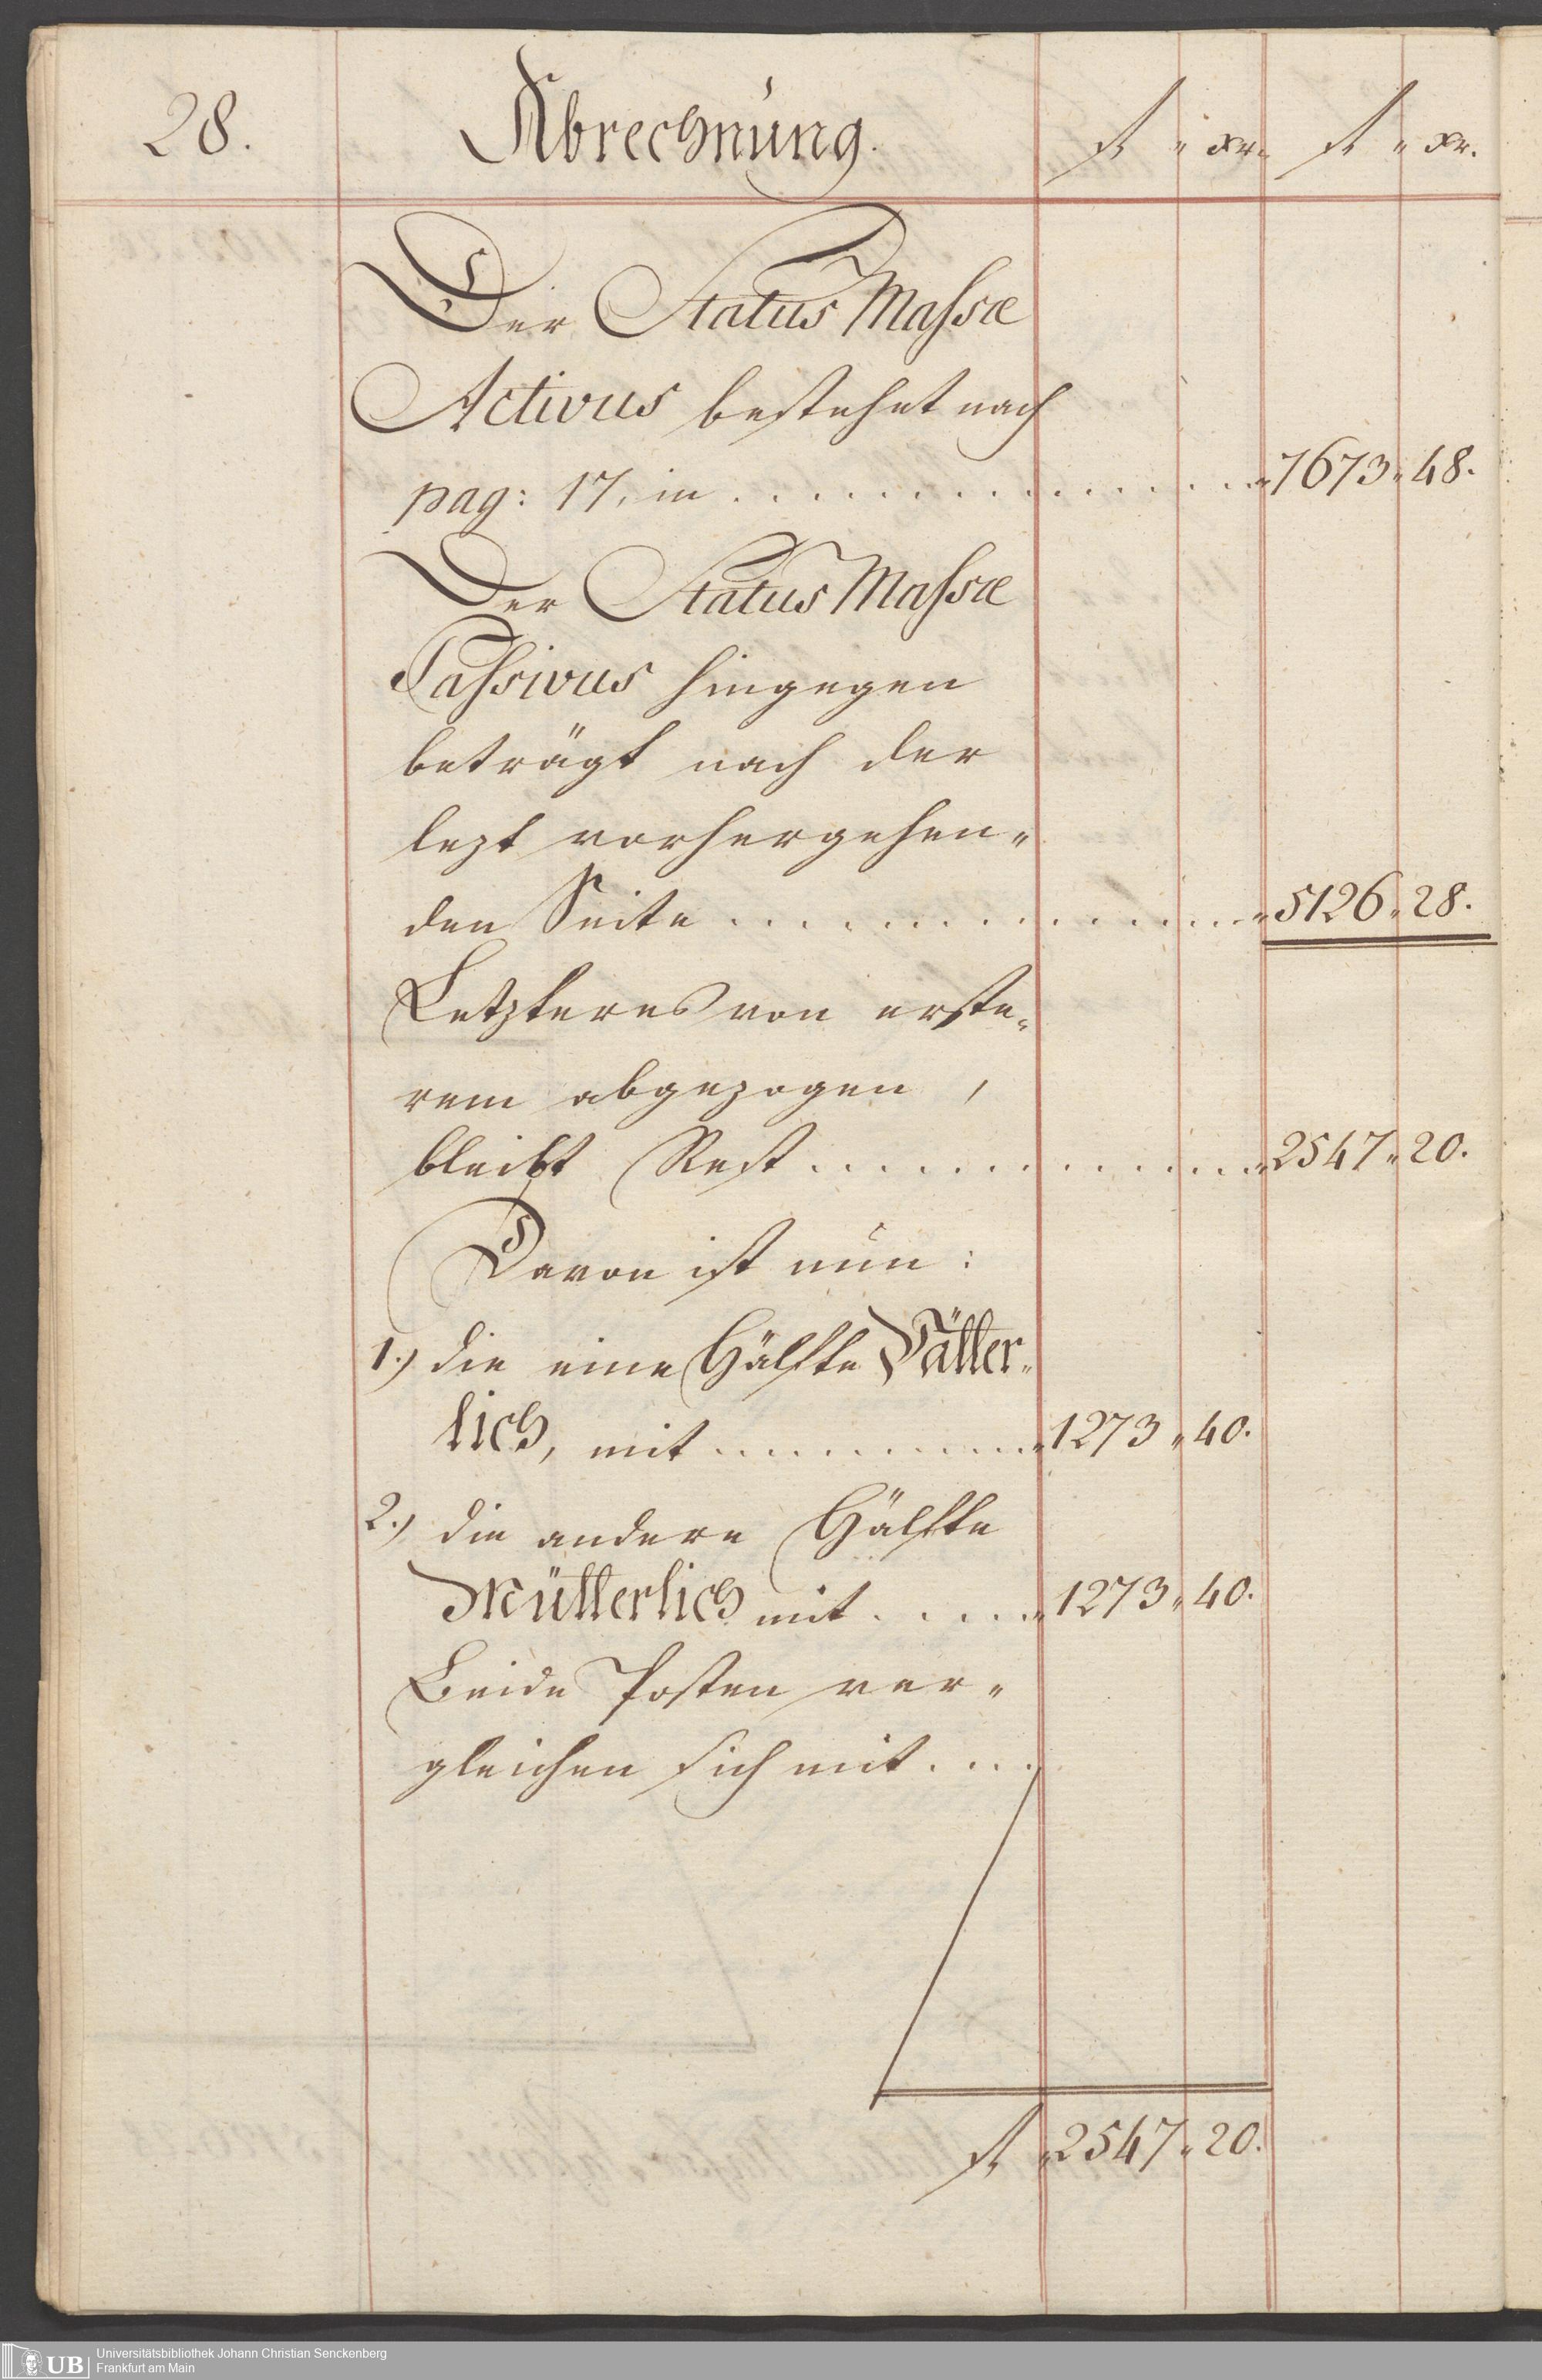 28. Abrechnung. fl " xr. fl " xr.
Der Status Massæ
Activus bestehet nach
pag: 17, in . . . . . . . . . . . . . . . . "7673" 48.
Der Status Massæ
Passivus hingegen
beträgt nach der
lezt vorhergehen„
den Seite . . . . . . . . . . . . . . . . "5126" 28.
Letzteres von erste„
rem abgezogen,
bleibt Rest . . . . . . . . . . . . . . "2547" 20.
Davon ist nun:
1.) die eine Hälfte Vätter„
lich, mit . . . . . . . . . . . "1273" 40.
2.) die andere Hälfte
Mütterlich mit . . . . . "1273" 40.
Beide Posten ver„
gleichen sich mit . . . .
fl "2547" 20.
UB Universitätsbibliothek Johann Christian Senckenberg
Frankfurt am Main